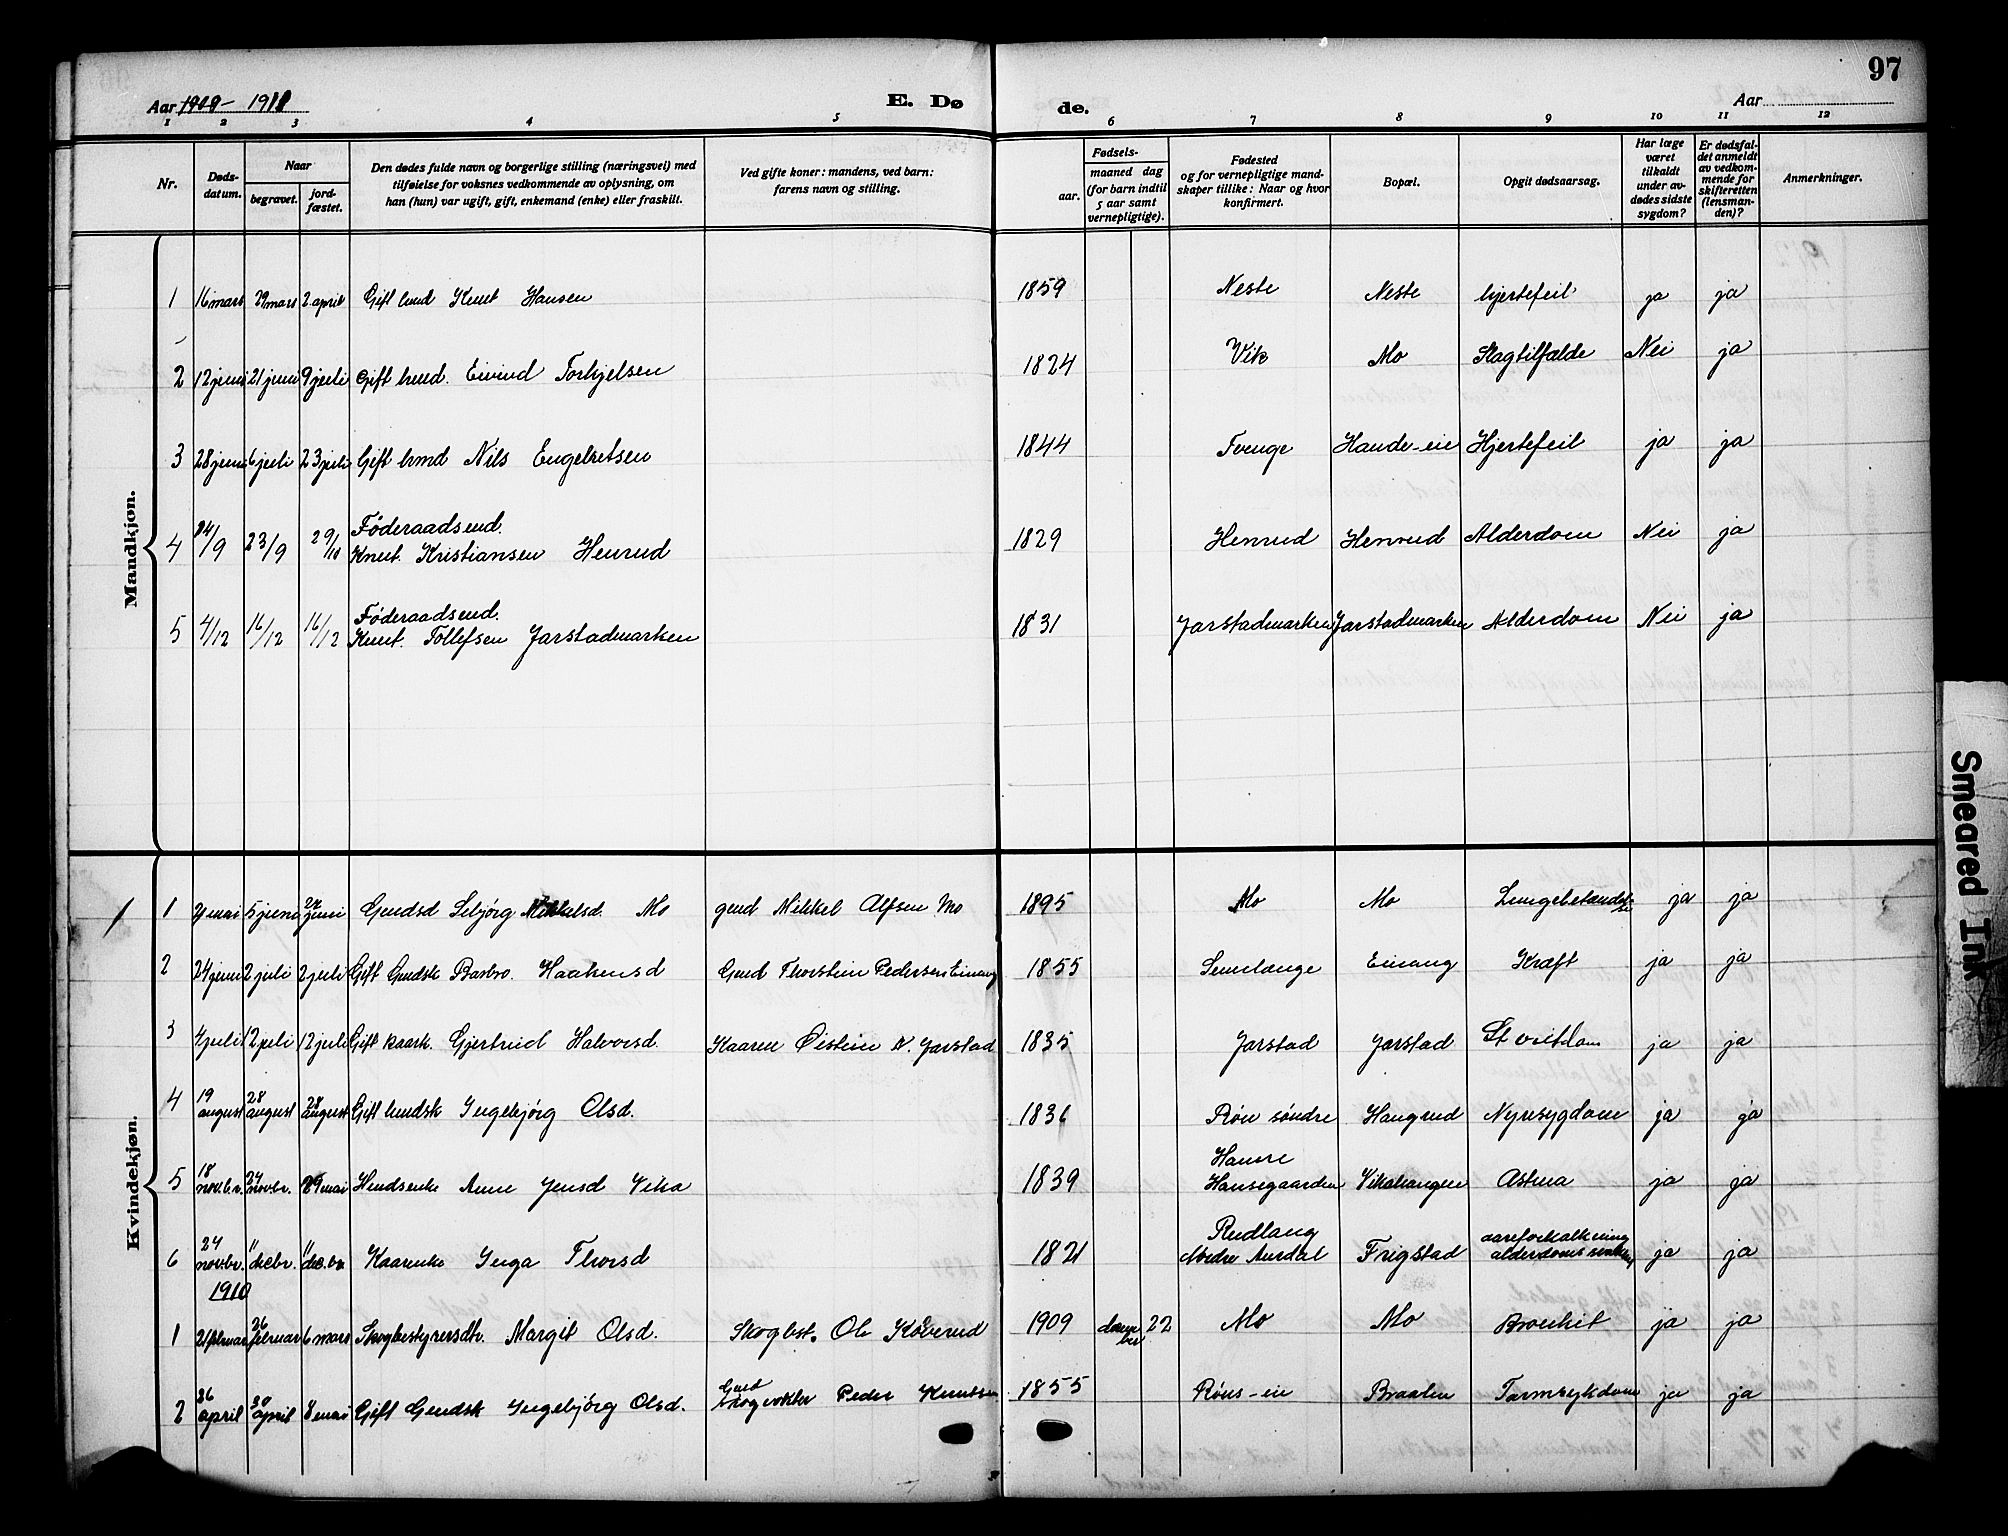 97
Aar 1909 - 1911
E. Dø
de.
Aar
1 2 3 4 5 6 7 8 9 10 11 12
Nr.
Døds-
datum.
Naar
begravet.
jord-
fæstet.
Den dødes fulde navn og borgerlige stilling (næringsvei) med
tilføielse for voksnes vedkommende av oplysning, om
han (hun) var ugift, gift, enkemand (enke) eller fraskilt.
Ved gifte koner: mandens, ved barn:
farens navn og stilling.
Fødsels-
aar.
maaned dag
(for barn indtil
5 aar samt
vernepligtige).
Fødested
og for vernepligtige mand-
skaper tillike: Naar og hvor
konfirmert.
Bopæl.
Opgit dødsaarsag.
Har læge
været
tilkaldt
under av-
dødes sidste
sygdom?
Er dødsfal-
det anmeldt
av vedkom-
mende for
skifteretten
(lensman-
den)?
Anmerkninger.
Mandkjøn.
1 16 mars 29 mars 2 april Gift Knut Hansen 1859 Neste Neste hjertefeil ja ja
2 12 juni 21 juni 9 juli Gift Eivind Torkjelsen 1824 Vik Mo Slagtilfælde Nei ja
3 28 juni 6 juli 23 juli Gift Nils Engebretsen 1844 Tvenge Haude-eie Hjertefeil ja ja
4 14/9 23/9 29/10 Føderaadsmd.
Knut Kristiansen Henrud 1829 Henrud Henrud Alderdom Nei ja
5 4/12 16/12 16/12 Føderaadsmd.
Knut Tollefsen Jarstadmarken 1831 Jarstadmarken Jarstadmarken Alderdom Nei ja
Kvindekjøn.
1 mai 5 juni juni Gmdsd Mikkelsd. Mo gmd Mikkel Alfsen Mo 1895 Mo Mo Lungebetændelse ja ja
2 24 juni 2 juli 2 juli Gift Gmdsk Barbro Haakensd Gmd Thorstein Pedersen Einang 1855 Semelænge Einang Kræft ja ja
3 4 juli 12 juli 12 juli Gift kaark. Gjertrud Halvorsd. Kaarm Øistein Jarstad 1835 Jarstad Jarstad ja ja
4 19 august 28 august 28 august Gift Ingebjørg Olsd. 1836 Røn søndre Haugrud Nyresygdom ja ja
5 18 novbr. 24 novbr. 29 mai Anne Jensd Vika 1839 Hansegaarden Vikahaugen Astma ja ja
6 24 novbr. 11 decbr. 11 dec.br Kaarenke Inga Thorsd 1821 Rudlang
Nordre Aurdal Frigstad aareforkalkning
ja ja
1910
1 21 februar 26 februar 6 mars Skogbestyrersdtr. Margit Olsd. Skogbst. Ole Køverud 1909 22 Mo Mo Bronkit ja ja
2 26 april 30 april 8 mai Gift Gmdsk Ingebjørg Olsd. Gmd
skogvokter Peder Knutsen 1855 Røns-eie Braaten Tarmsykdom ja ja
Smeared Ink